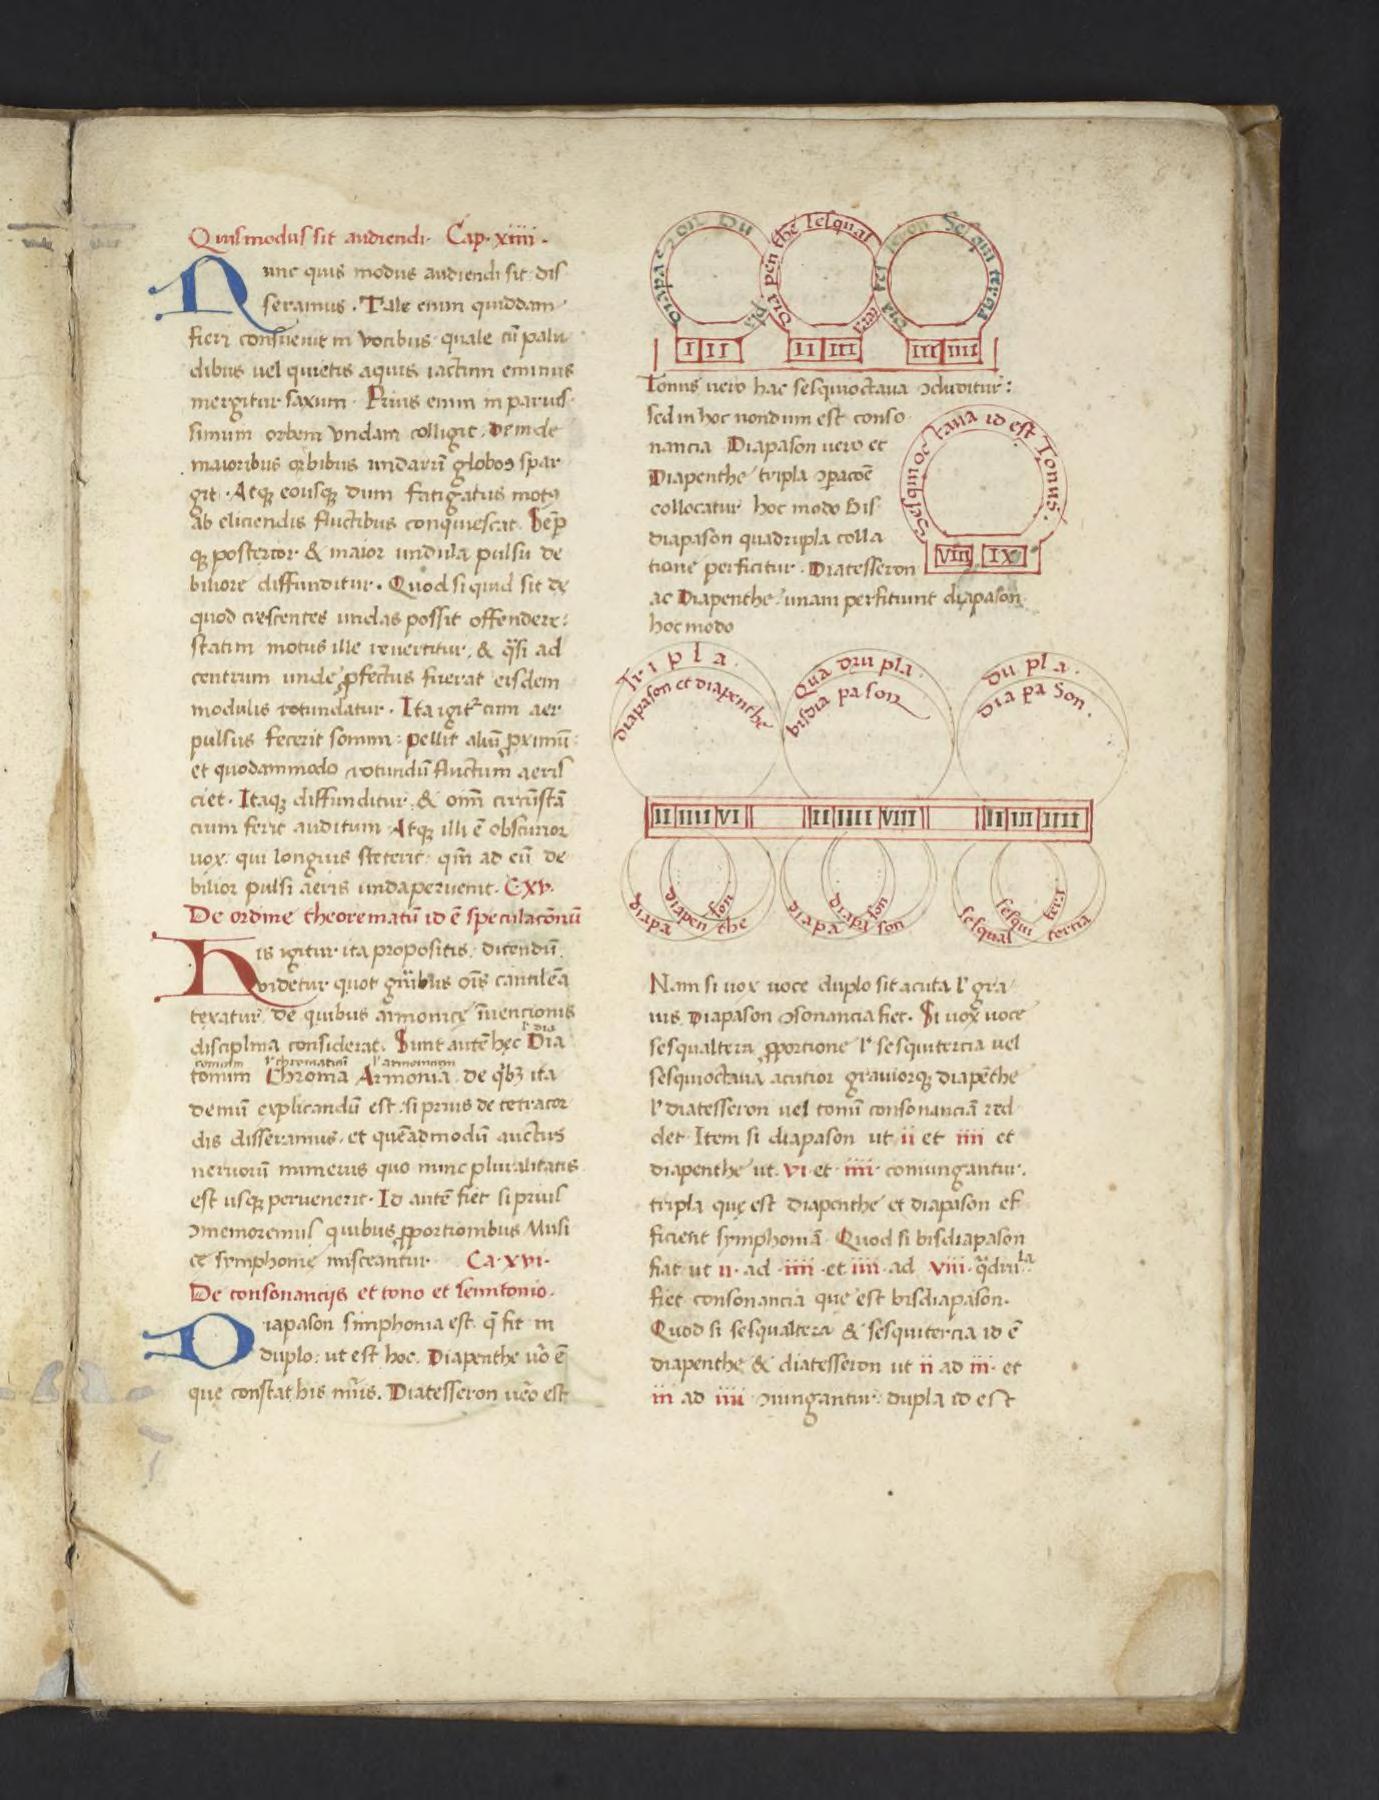 Quis modus sit audiendi. Cap. xiiii.
Nunc quis modus audiendi sit dis
seramus. Tale enim quiddam
fieri consuevit in vocibus quale cũ palu
dibus uel quietis aquis iactum eminus
mergitur saxum. Prius enim in paruis
simum orbem undam colligit. Deinde
maioribus orbibus undarũ globos spar
git. Atqꝫ eousqꝫ dum fatigatus motꝰ
ab eliciendis fluctibus conquiescat. Sep̄
qꝫ posterior & maior undula pulsu de
biliore diffunditur. Quod si quid sit
quod crescentes undas possit offendere:
statim motus ille revertitur, & q̃si ad
centrum unde ꝓfectus fuerat eisdem
modulis rotundatur. Ita igit᷑ cum aer
pulsus fecerit sonum: pellit aliũ ꝓximũ:
et quodammodo rotundũ fluctum aeris
ciet. Itaqꝫ diffunditur & om̃ circũstã
cium ferit auditum. Atqꝫ illi ẽ obscurior
uox. qui longius steterit. qm̃ ad eũ de
bilior pulsi aeris unda peruenit. C xv.
De ordine theorematũ id ẽ speculacõnũ
His igitur ita propositis. dicendũ
videtur quot oĩs cantilẽa
texatur. de quibus armonicę ĩuencionis
disciplina considerat. Sunt autẽ hęc Dia
l' dia
tonum Chroma Armonia. de qͥbꝫ ita
conum l' chromaticũ l' armonicum
demũ explicandũ est. si prius de tetracor
dis disseramus. et quẽadmodũ auctus
neruorũ numerus quo nunc pluralitatis
est usqꝫ peruenerit. Id autẽ fiet si prius
ↄmemoremus quibus ꝓportionibus Musi
cę symphonię misceantur. Ca. xvi.
De consonancijs et tono et semitonio.
Diapason simphonia est. q̃ fit in
duplo: ut est hoc. Diapenthe uͦo ẽ
que constat his nũis. Diatesseron uero est
Diapason Du pla
Dia pen the sesqual tera
Dia te ron Sesqui tercia
I II
II III
III IIII
Tonus uero hac sesquioctaua ↄcluditur:
sed in hoc nondum est conso
nancia. Diapason uero et
Diapenthe tripla ↄparacõe
collocatur hoc modo Bis
diapason quadrupla colla
tione perficitur. Diatesseron
ac Diapenthe unam perficiunt diapason
hoc modo
Sesquioc taua id est Tonus.
VIII IX
Tripla.
diapason et diapenthe
Qua dru pla.
bisdia pason
du pla.
dia pa son.
II IIII VI
II IIII VIII
II III IIII
diapa son
diapen the
diapa son
diapa son
sesqual tera
sesqui tercia
Nam si uox uoce duplo sit acuta l' gra
uis. Diapason ↄsonancia fiet. Si uox uoce
sesqualtera ꝓportione l' sesquitercia uel
sesquioctaua acutior grauiorqꝫ diapẽthe
l' diatesseron uel tonũ consonanciã red
det. Item si diapason ut ii et iiii et
diapenthe ut. vi et iiii coniungantur.
tripla quę est diapenthe et diapason ef
ficient symphoniã. Quod si bisdiapason
fiat ut ii. ad iiii et iiii ad viii. q̃dru
la
fiet consonancia que est bisdiapason.
Quod si sesqualtera & sesquitercia id ẽ
diapenthe & diatesseron ut ii ad iii. et
iii ad iiii ↄiungantur. dupla id est